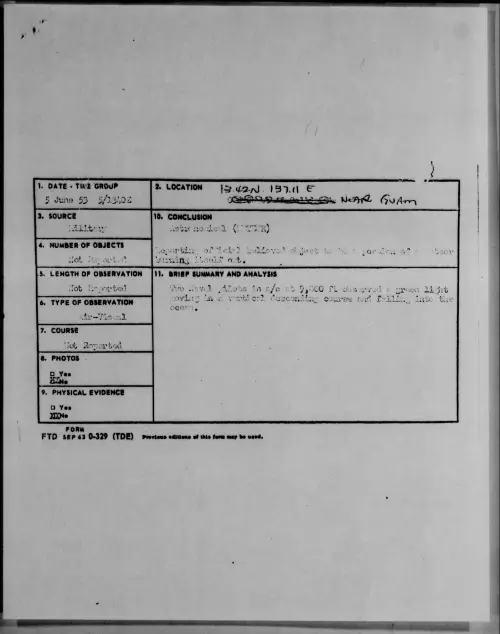 1. DATE - TIME GROUP
5 June 53 5/1340Z
2. LOCATION
13.42N 137.11 E
NEAR GUAM
3. SOURCE
Military
10. CONCLUSION
Astronomical (METEOR)
Reporting official believed object to be a portion of meteor
burning itself out.
4. NUMBER OF OBJECTS
Not Reported
5. LENGTH OF OBSERVATION
Not Reported
11. BRIEF SUMMARY AND ANALYSIS
Two Naval pilots in a/c at 9,000 ft observed a green light
moving in a vertical descending course and falling into the
ocean.
6. TYPE OF OBSERVATION
Air-Visual
7. COURSE
Not Reported
8. PHOTOS
□ Yes
No
9. PHYSICAL EVIDENCE
□ Yes
No
FORM
FTD SEP 63 0-329 (TDE) Previous editions of this form may be used.